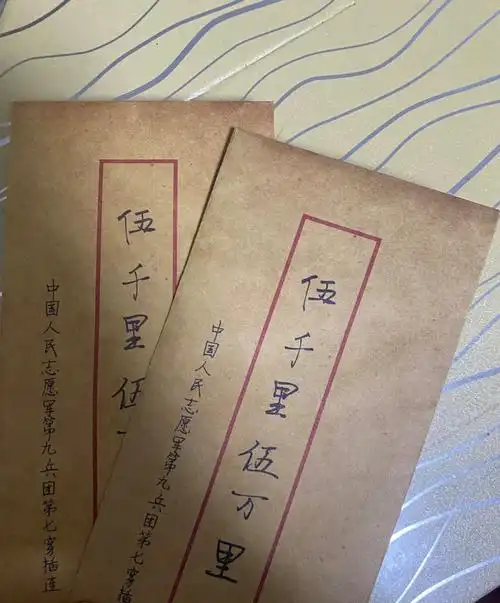 伍千里伍
中国人民志愿军第九兵团第七穿插连
伍千里伍万里
中国人民志愿军第九兵团第七穿插